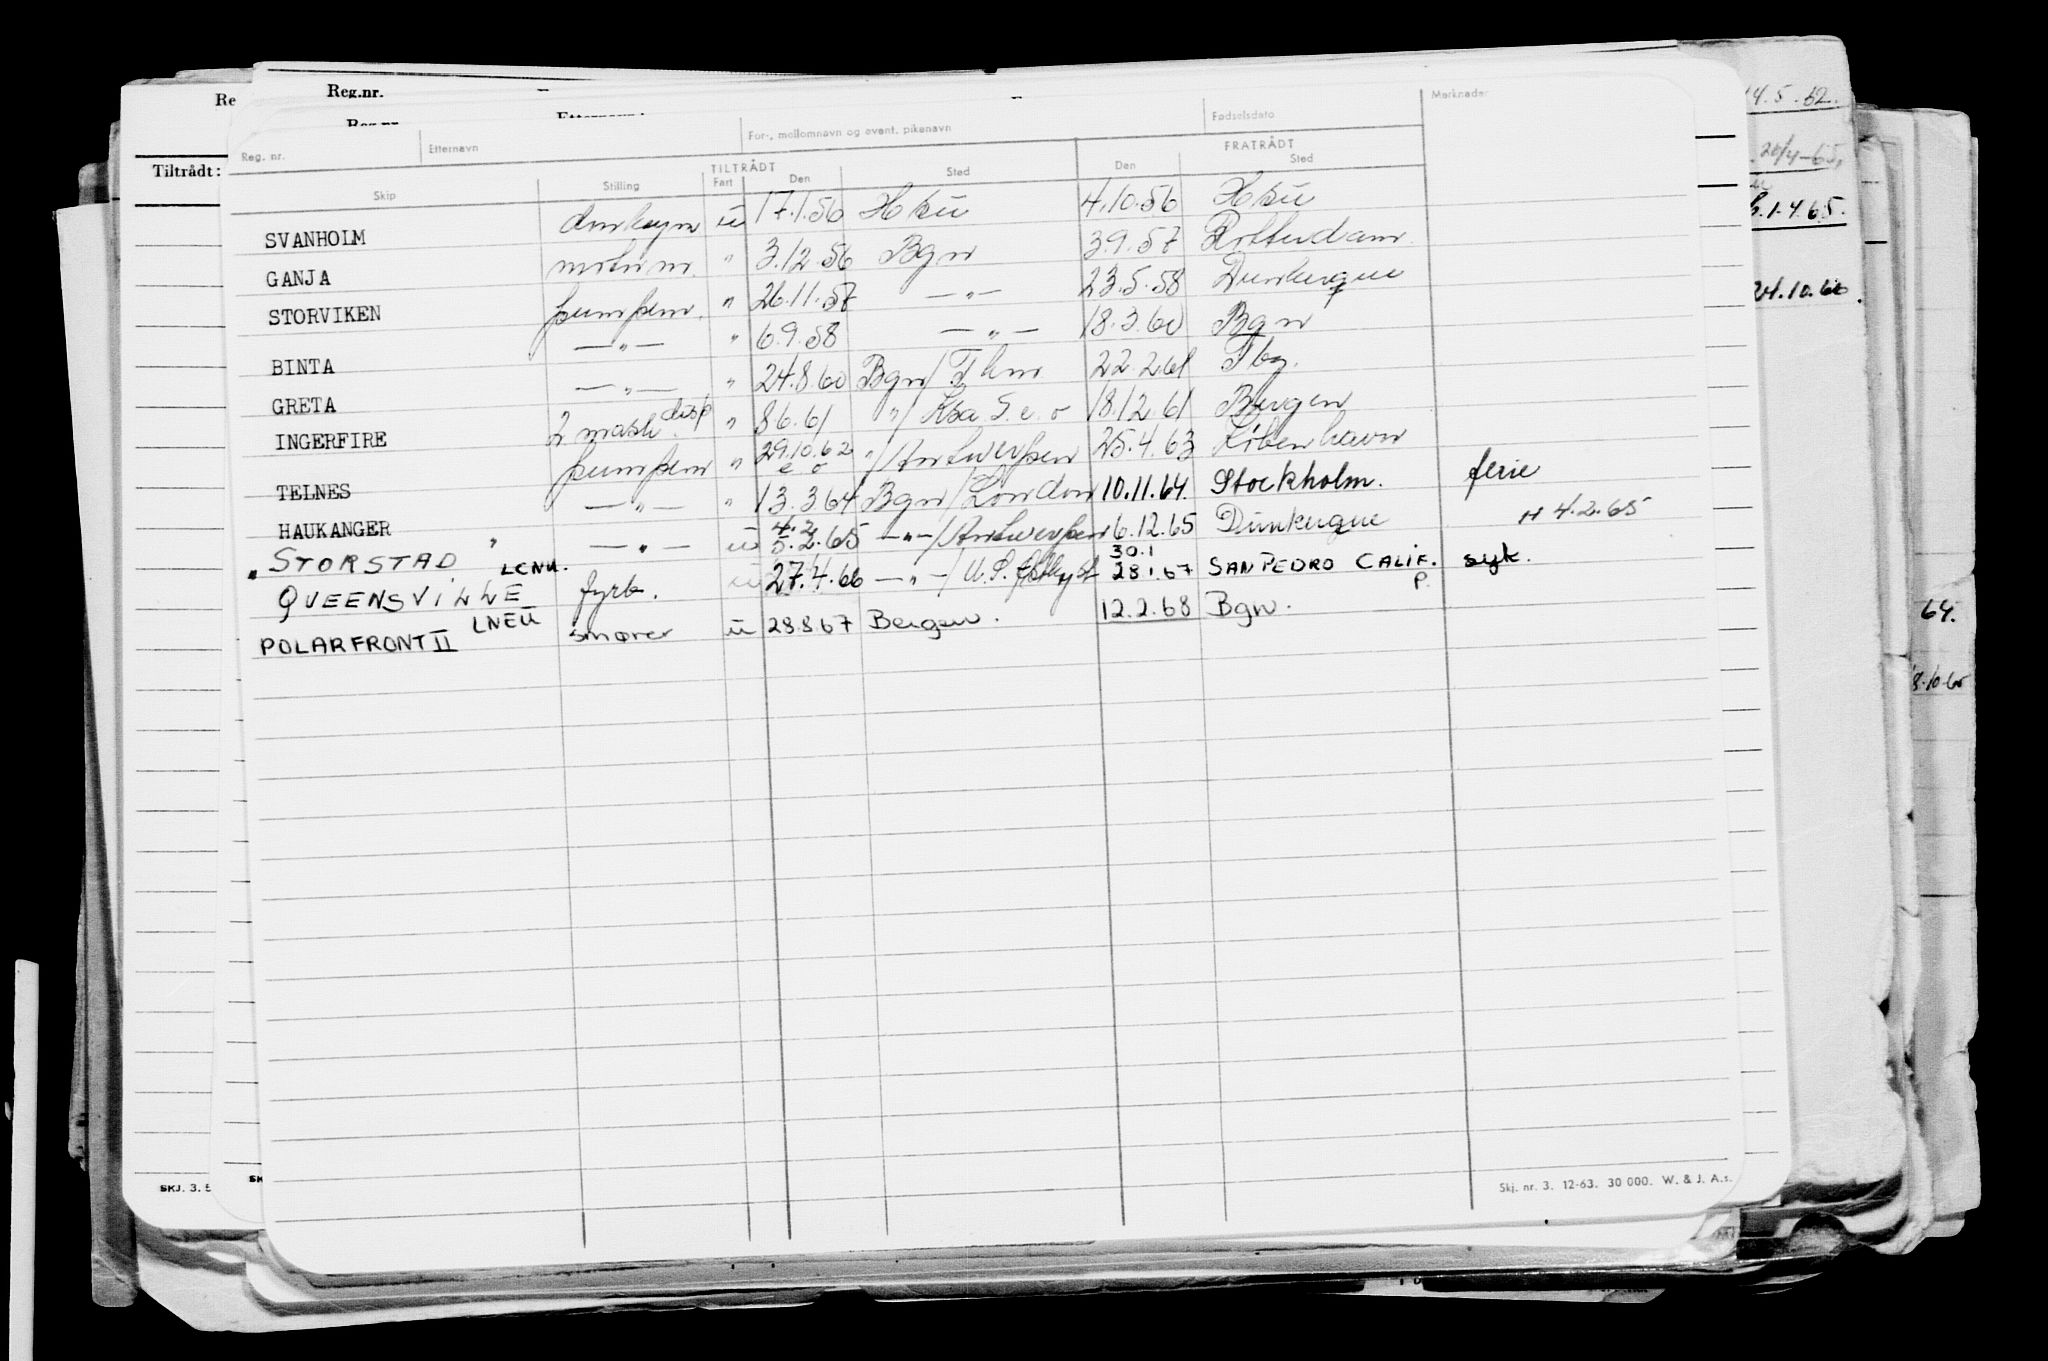 Reg.nr.
Re
Tiltrådt:
Reg. nr. Etternavn For-, mellomnavn og event. pikenavn Fødselsdato Merknader
TILTRÅDT FRATRÅDT
Skip Stilling Fart Den Sted Den Sted
SVANHOLM u 17.1.56 4.10.56
GANJA motorm. " 3.12.56 Bgn 3.9.57 Rotterdam
STORVIKEN pumpem. " 26.11.57 —"— 23.5.58 Dunkerque
BINTA —"— " 6.9.58 —"— 18.3.60 Bgn
GRETA —"— " 24.8.60 Bgn/ 22.2.61 Tbg.
INGERFIRE 2 mask disp " 8.6.61 "/ 18.12.61 Bergen
TELNES pumpem " 29.10.62 e o "/Antwerpen 25.4.63 København
HAUKANGER —"— " 13.3.64 Bgn/London 10.11.64. Stockholm. ferie
" STORSTAD " —"— u 4.2 5.2.65 —"—/Antwerpen 6.12.65 Dunkerque H 4.2.65
QUEENSVILLE LCNU. fyrb. u 27.4.66 —"—/U.S. 30.1 28.1.67 SAN PEDRO CALIF. syk.
P.
POLARFRONT II LNEU smører u 28.8.67 Bergen. 12.2.68 Bgn.
14.5.62.
20/4-65,
1.4.65.
24.10.60.
64.
8.10.65
SKJ. 3.
SK
Skj. nr. 3. 12-63. 30 000. W. & J. A.s.